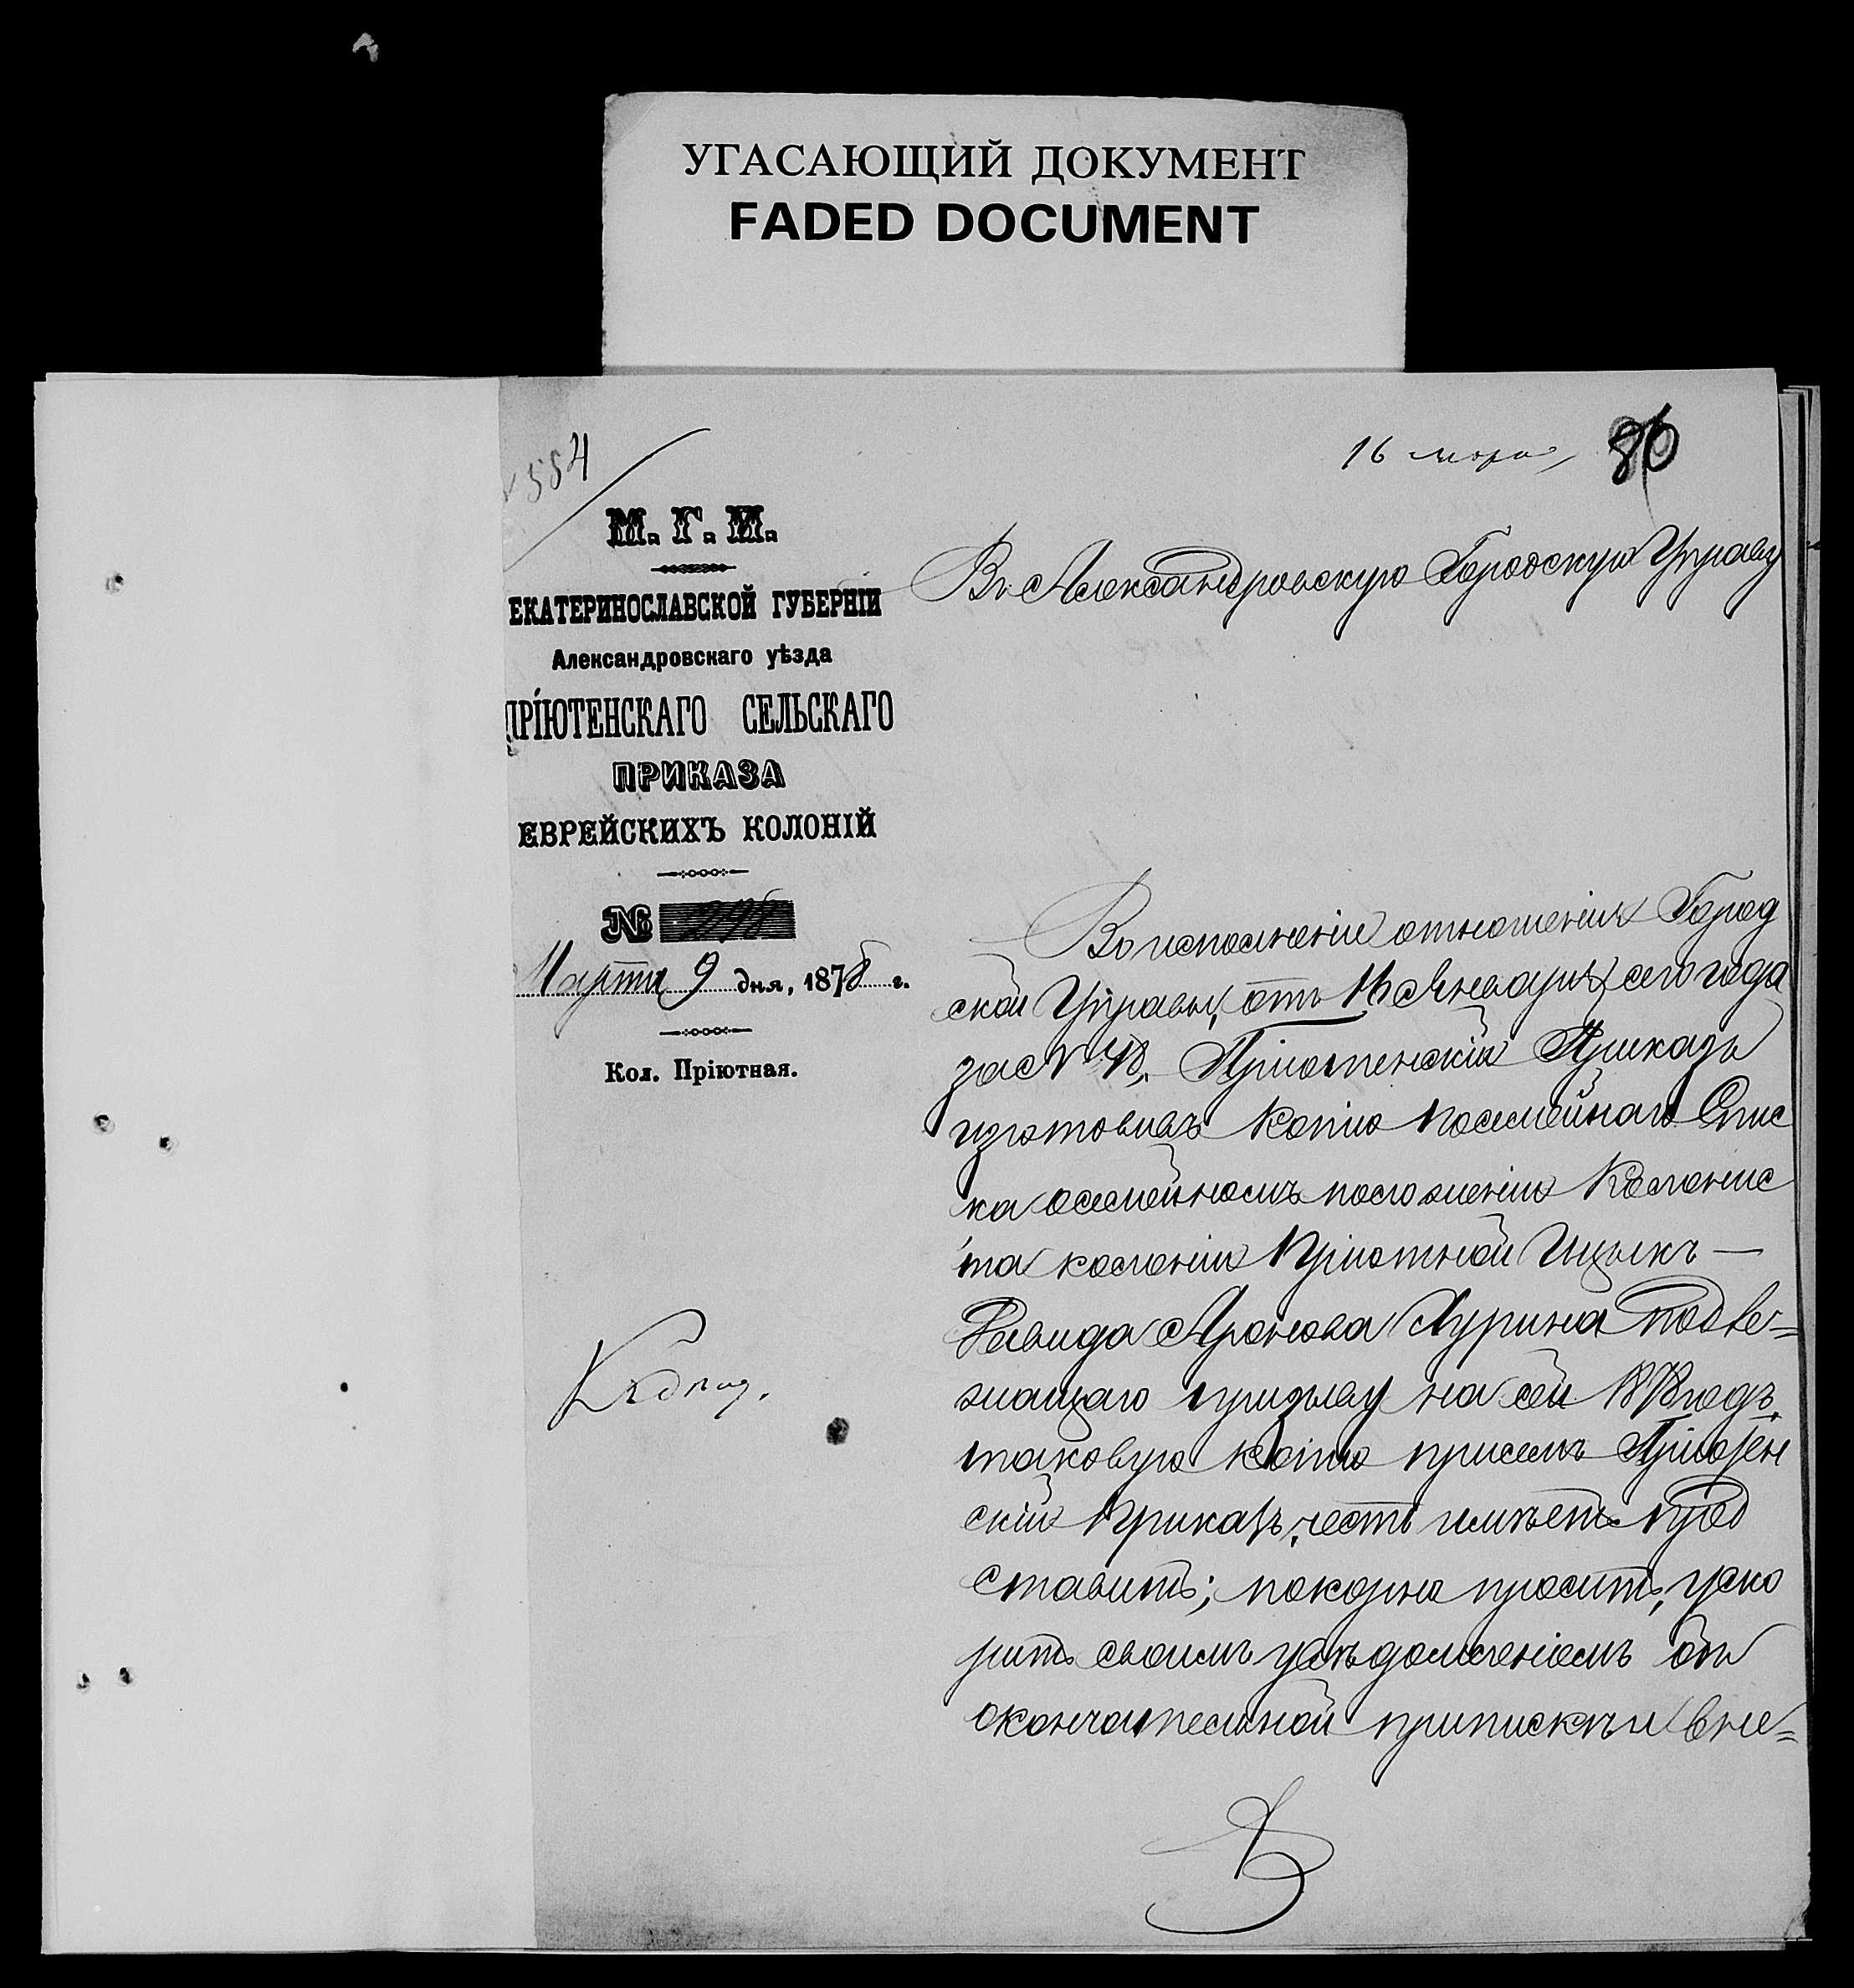 УГАСАЮЩИЙ ДОКУМЕНТ
FADED DOCUMENT
554
16 мара
86
М. Г. И.
ЕКАТЕРИНОСЛАВСКОЙ ГУБЕРНІИ
Александровскаго уѣзда
ПРІЮТЕНСКАГО СЕЛЬСКАГО
ПРИКАЗА
ЕВРЕЙСКИХЪ КОЛОНІЙ
№
Марта 9 дня, 1878 г.
Кол. Пріютная.
Въ Александровскую Городскую Управу
Во исполненіе отношенія Город
ской Управы, отъ 16 Января сего года
за № 48, Пріютенскій Приказъ
изготовивъ копію посемейнаго Спис
ка о семейномъ положеніи Колонис
та колоніи Пріютной Ицыкъ —
Давида Аронова Лурина подле=
жащаго призыву на сей 1878 годъ,
таковую копію присемъ Пріютен
скій Приказъ, честь имѣетъ пред
ставить; покорно проситъ, уско
рить своимъ увѣдомленіемъ объ
окончательной припискѣ и вне=
К дѣлу.